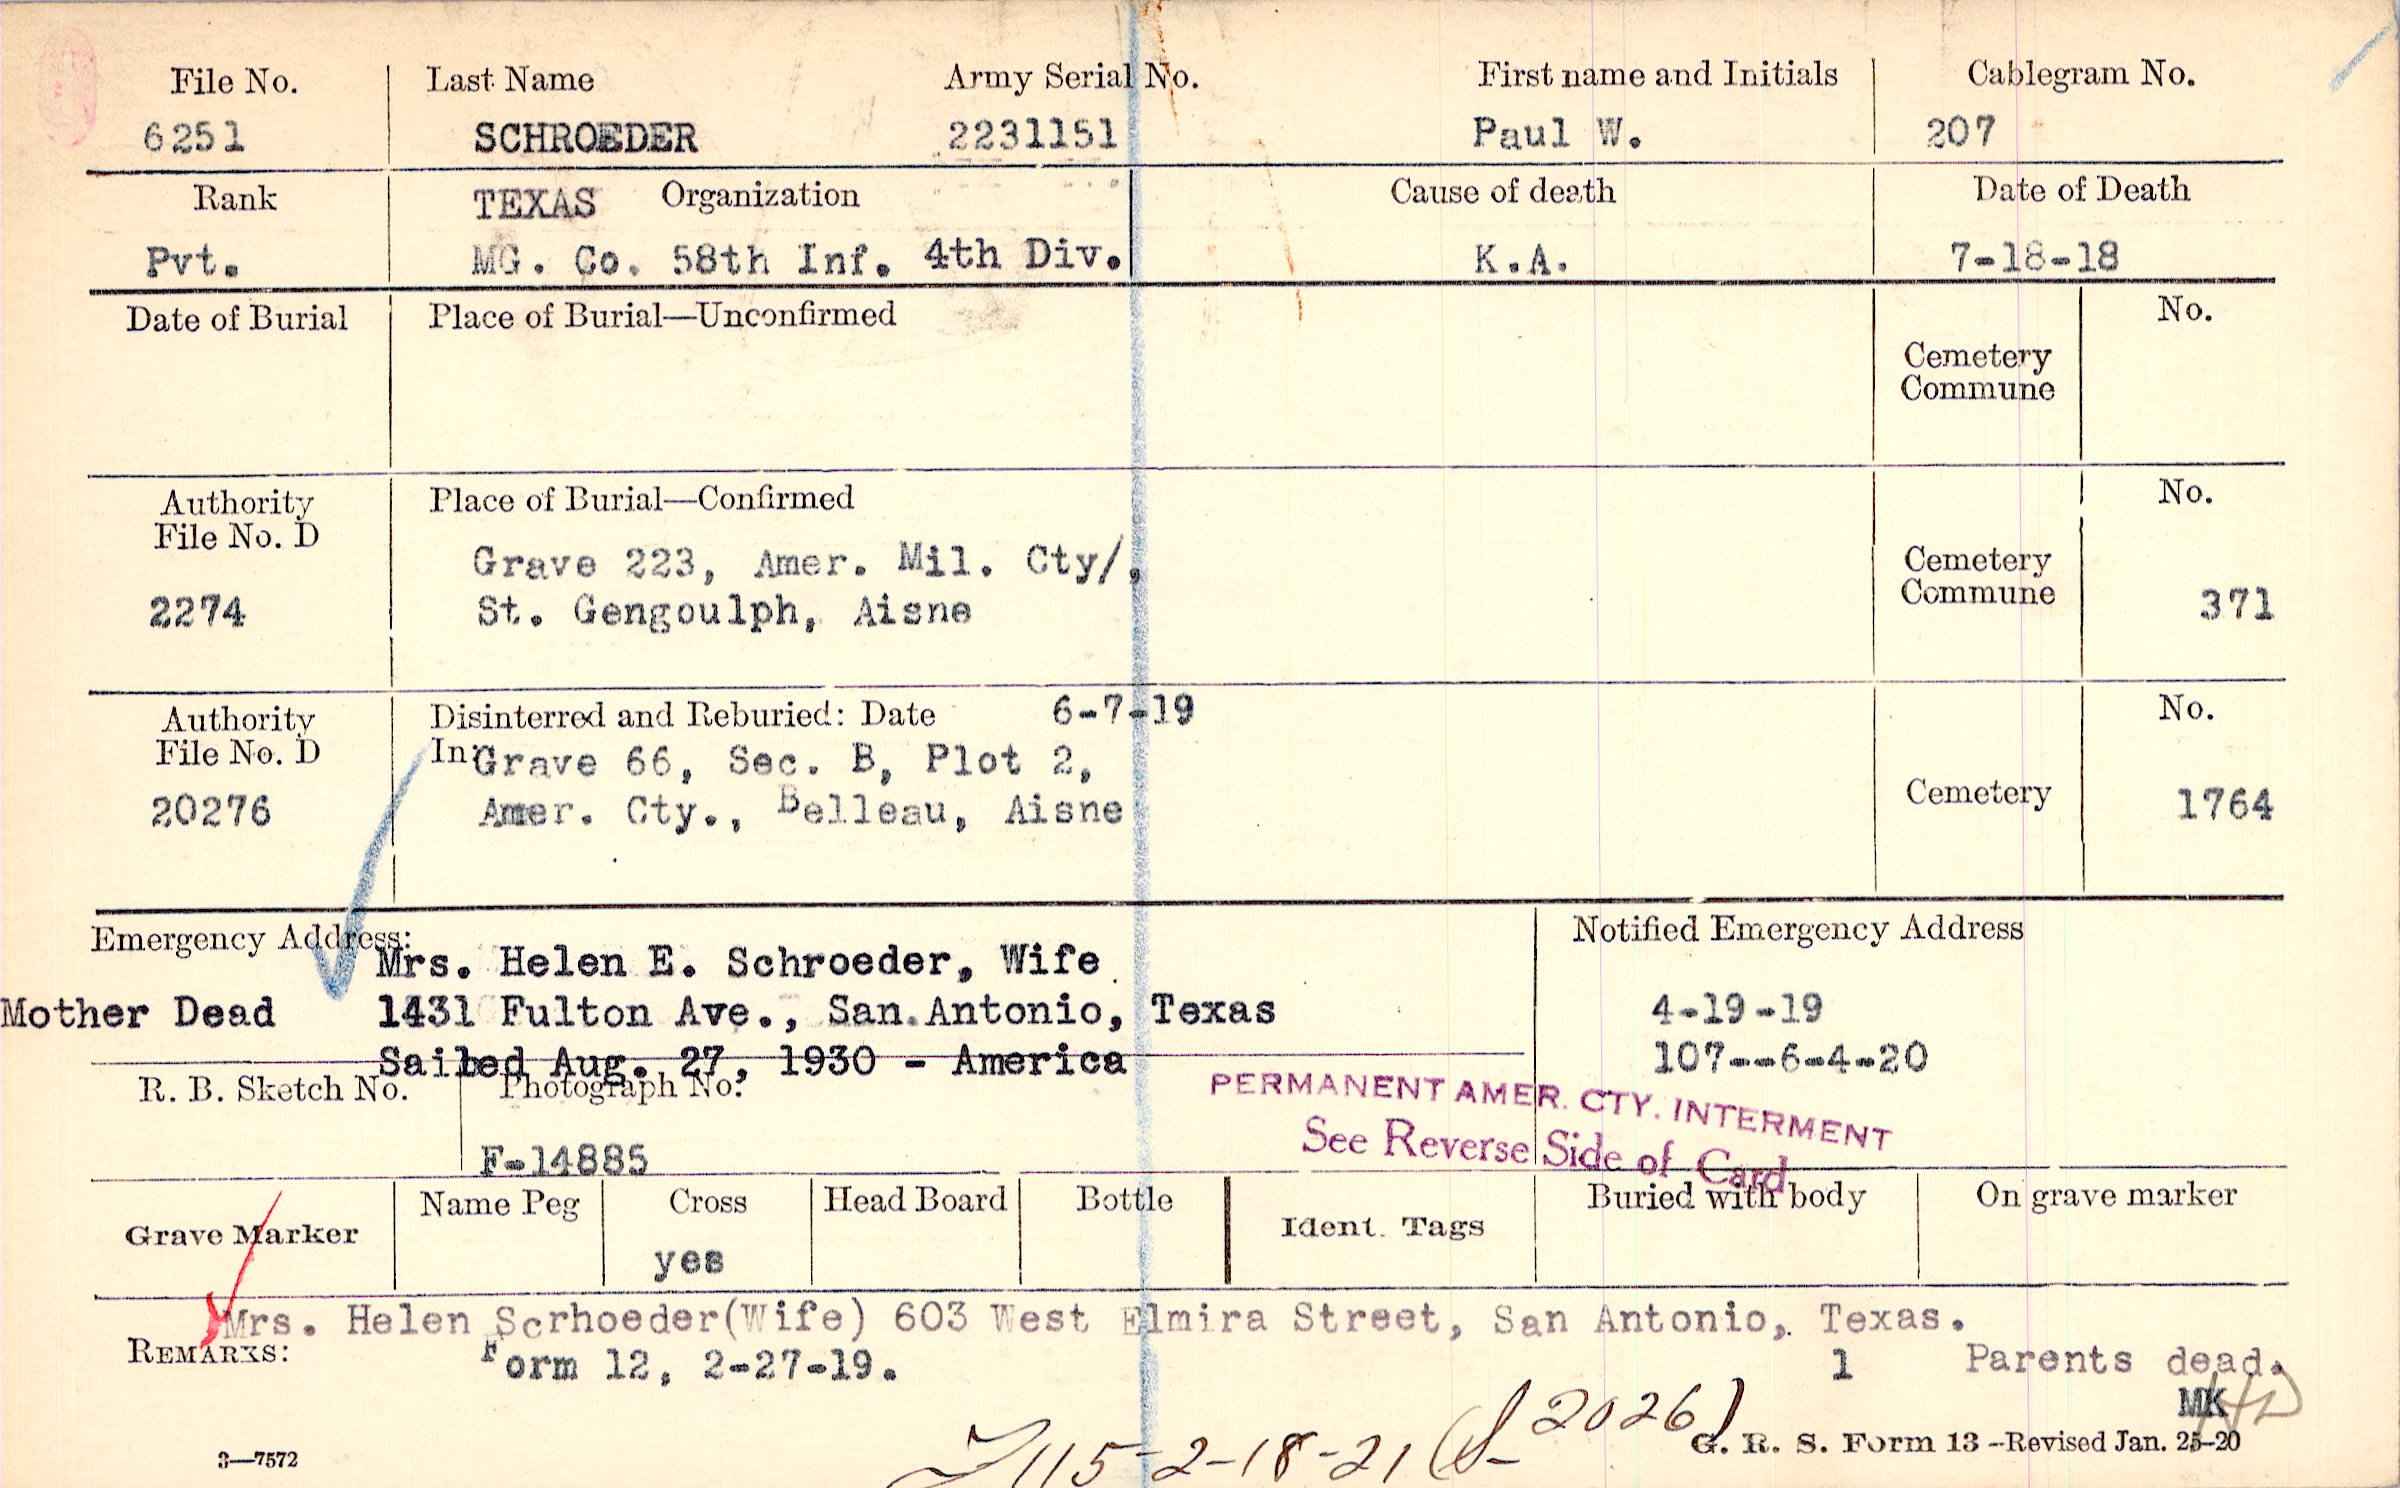 File No. Last Name Army Serial No. First name and Initials Cablegram No.
6251 SCHROEDER 2231151 Paul W. 207
Rank TEXAS Organization Cause of death Date of Death
Pvt. MG. Co. 58th Inf. 4th Div. K.A. 7-18-18
Date of Burial Place of Burial—Unconfirmed No.
Cemetery
Commune
Authority Place of Burial—Confirmed No.
File No. D
Grave 223, Amer. Mil. Cty/, Cemetery
2274 St. Gengoulph, Aisne Commune 371
Authority Disinterred and Reburied: Date 6-7-19 No.
File No. D In: Grave 66, Sec. B, Plot 2,
20276 Amer. Cty., Belleau, Aisne Cemetery 1764
Emergency Address: Notified Emergency Address
Mrs. Helen E. Schroeder, Wife
Mother Dead 1431 Fulton Ave., San Antonio, Texas 4-19-19
Sailed Aug. 27, 1930 - America 107--6-4-20
R. B. Sketch No. Photograph No.
PERMANENT AMER. CTY. INTERMENT
See Reverse Side of Card
F-14885
Grave Marker Name Peg Cross Head Board Bottle Ident. Tags Buried with body On grave marker
yes
Mrs. Helen Scrhoeder(Wife) 603 West Elmira Street, San Antonio, Texas.
REMARKS: Form 12, 2-27-19. 1 Parents dead.
MK
115-2-18-21 2026)
G. R. S. Form 13 -Revised Jan. 25-20
3—7572